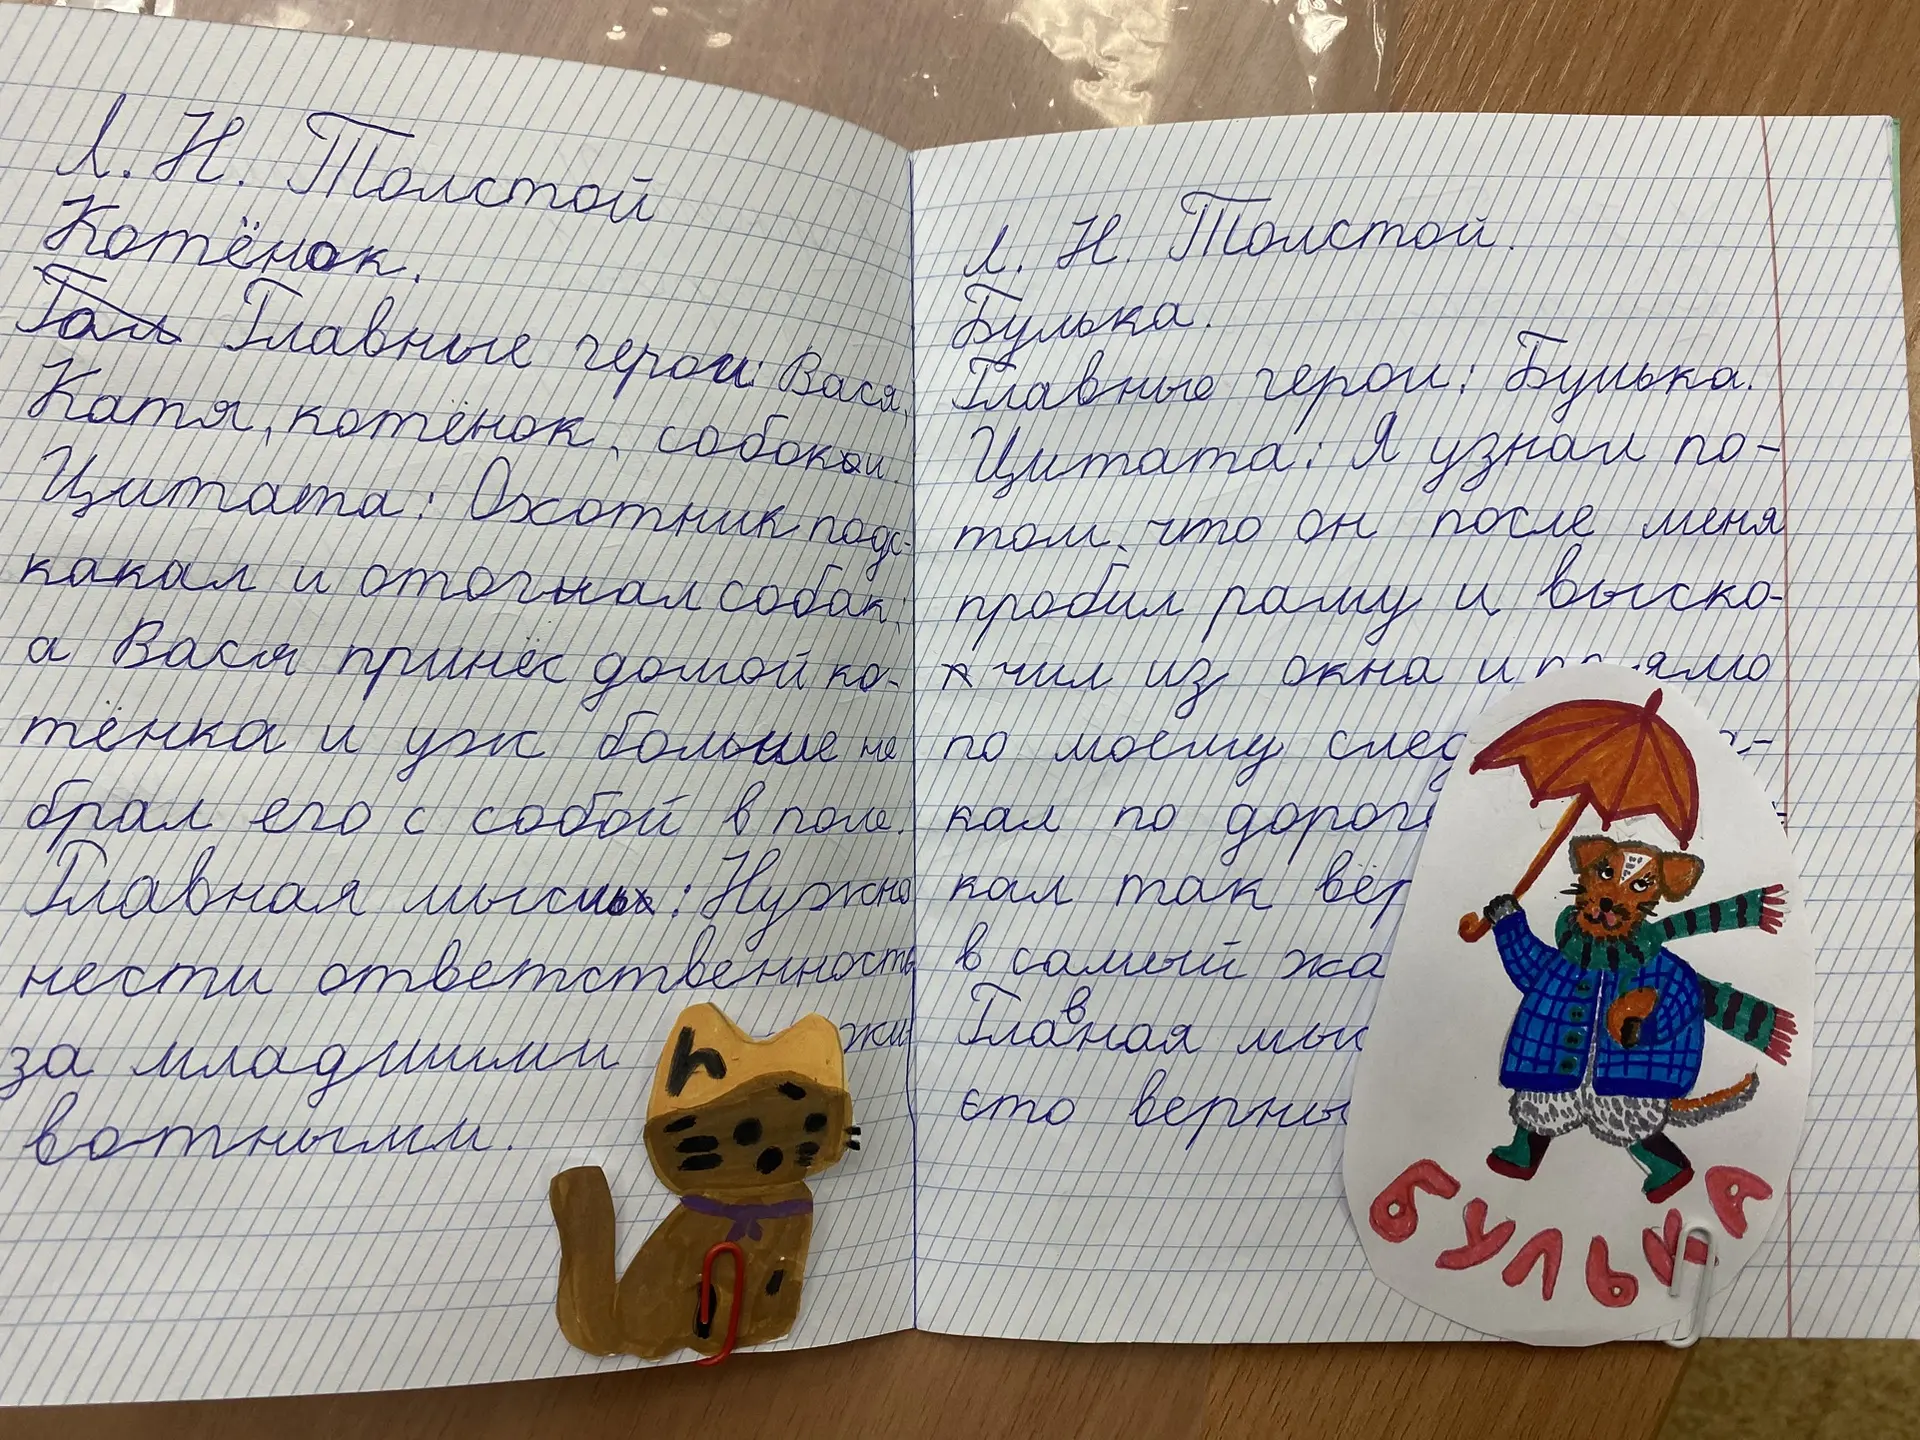 Л. Н. Толстой
Котёнок.
Главные герои: Вася,
Катя, котёнок, собоки.
Цитата: Охотник подс-
какал и отогнал собак,
а Вася принёс домой ко-
тёнка и уж больше не
брал его с собой в поле.
Главная мысль: Нужно
нести ответственность
за младшими жи
вотными.
Л. Н. Толстой.
Булька.
Главные герои: Булька.
Цитата: Я узнал по-
том, что он после меня
пробил раму и выско-
чил из окна и прямо
по моему след
кал по дороге
кал так вёр
в самый жа
Главная мыс
ето верны
БУЛЬКА